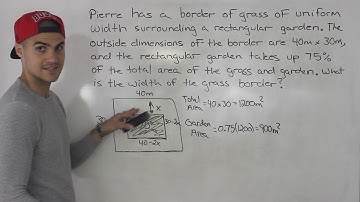 Pierre has a border of grass of uniform
width surrounding a rectangular garden. The
outside dimensions of the border are 40m x 30m,
and the rectangular garden takes up 75%
of the total area of the grass and garden. What
is the width of the grass border?
40m
Total Area = 40 x 30 = 1200m²
x
30
30-2x
Garden Area = 0.75(1200) = 900m²
40-2x